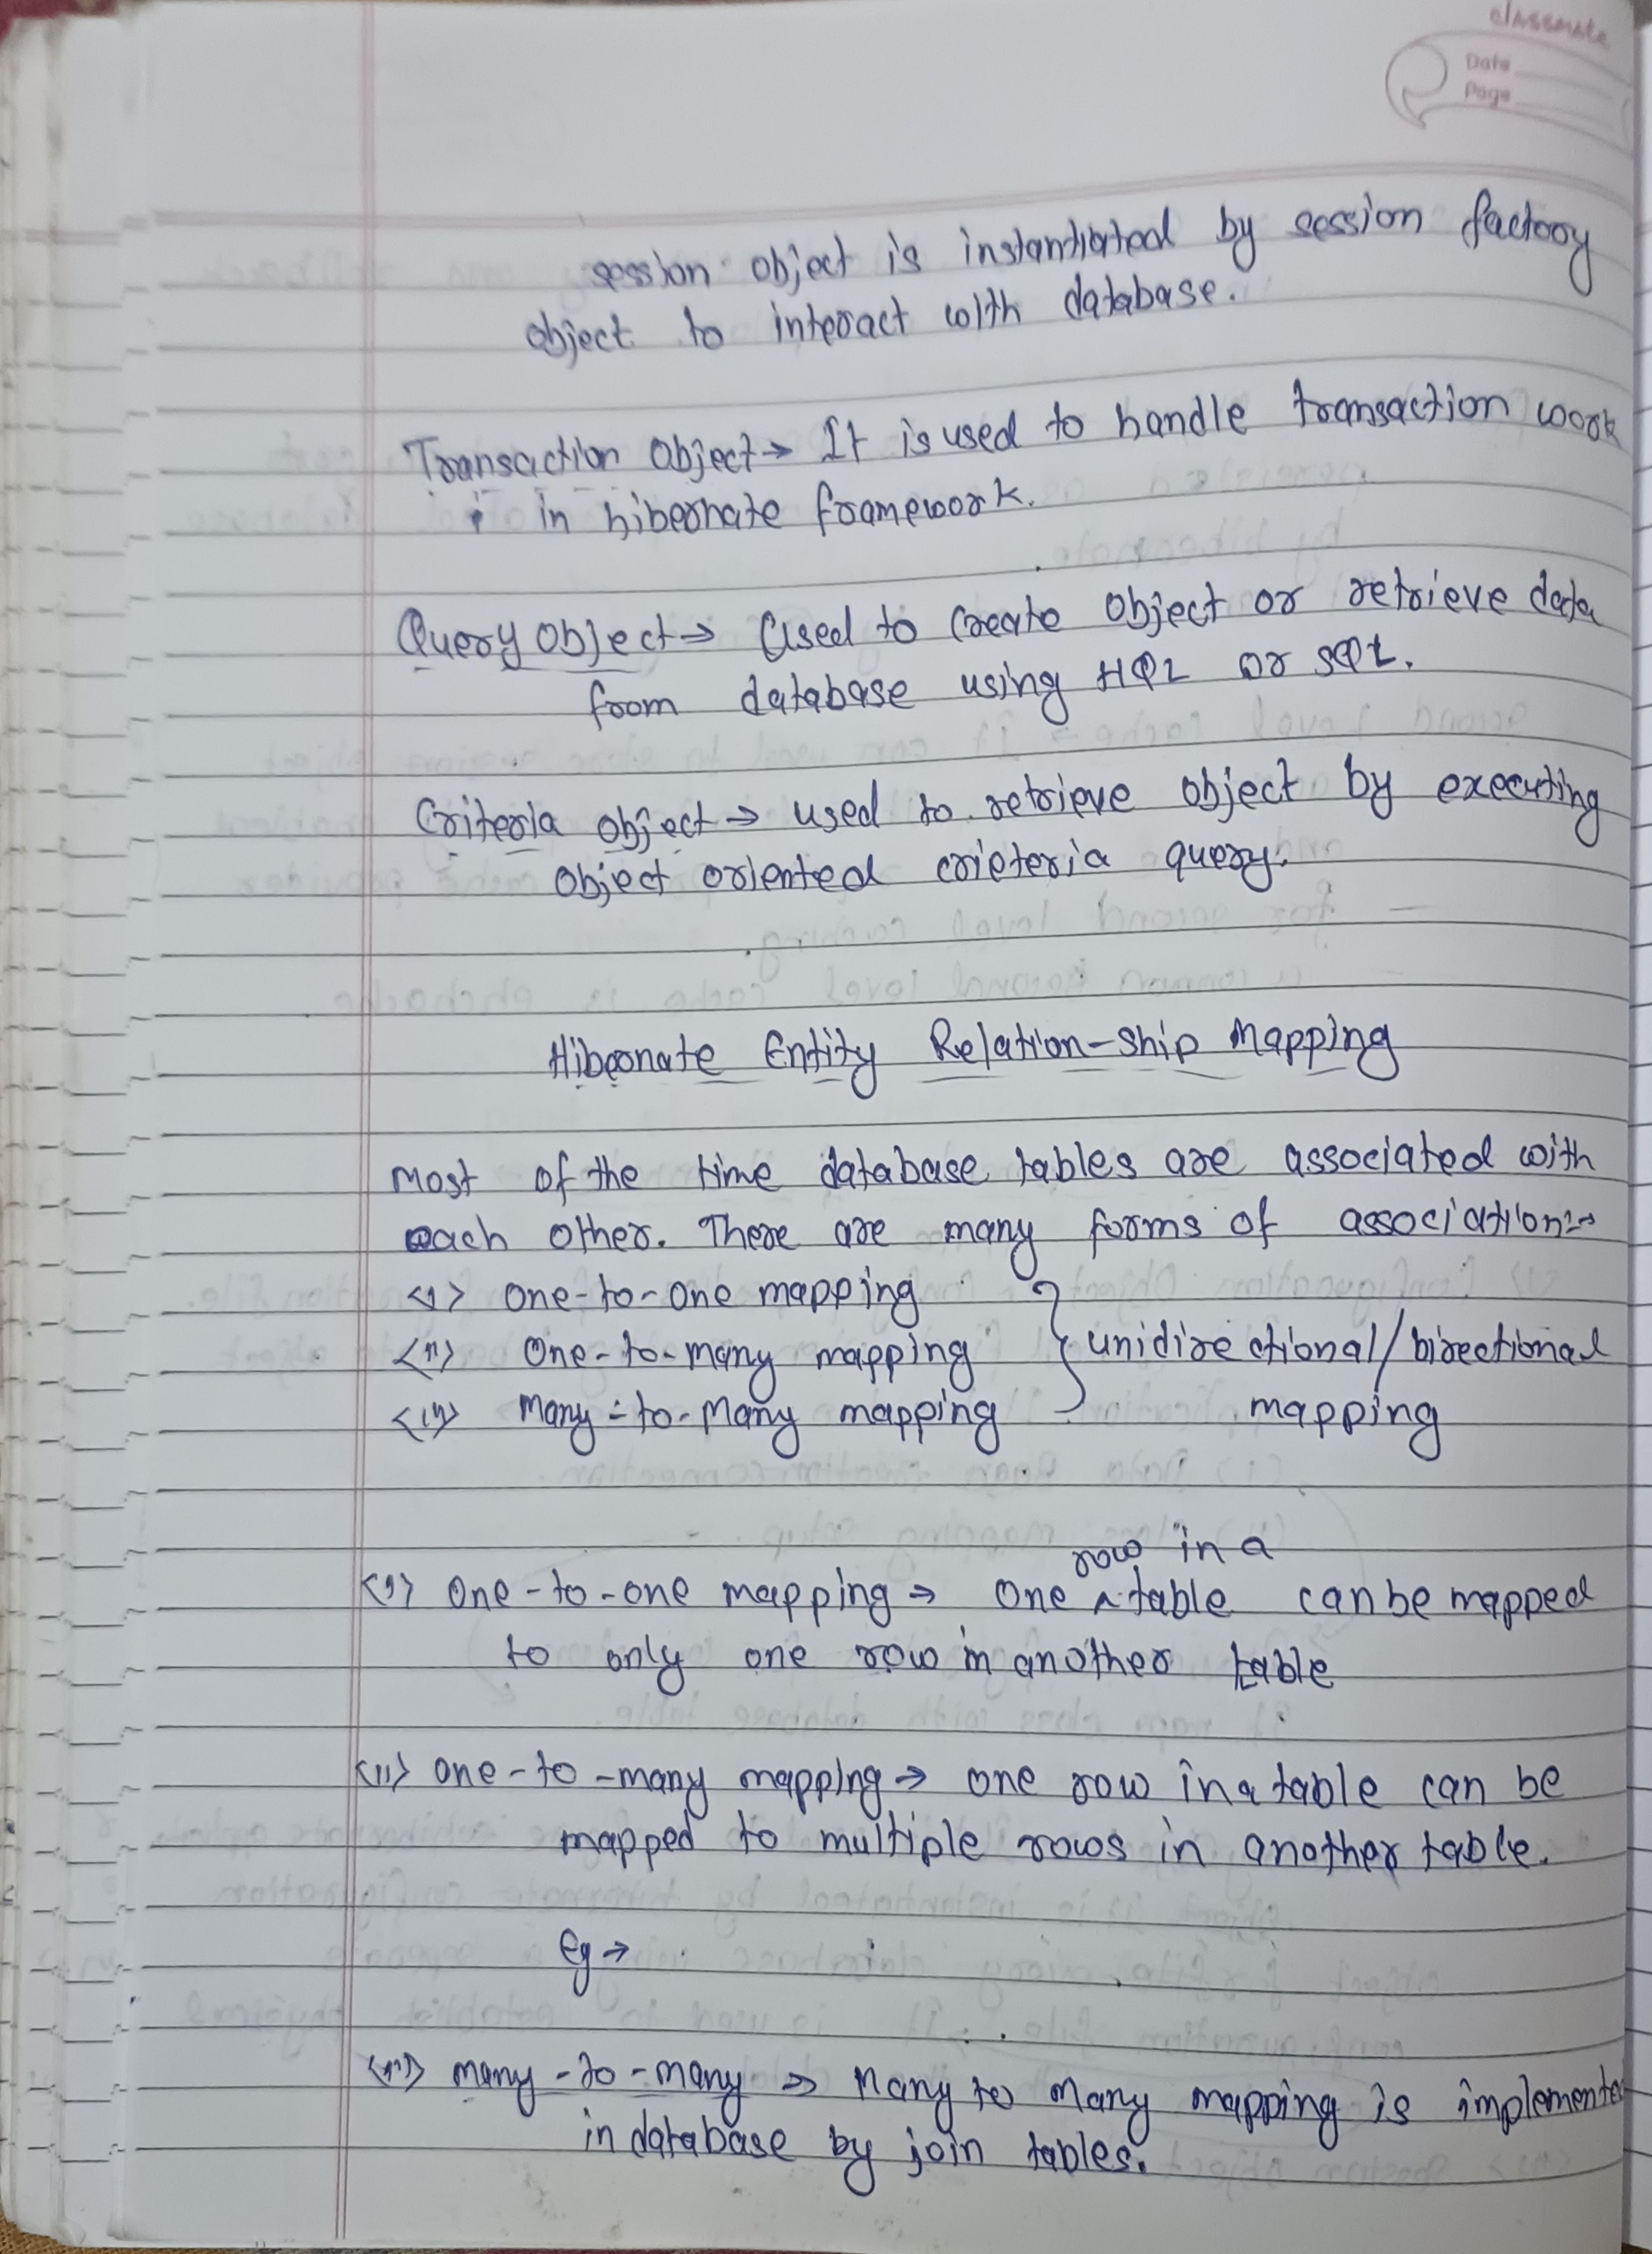 classmate
Date
Page
session object is instantiated by session factory
object to interact with database.
Transaction Object → It is used to handle transaction work
in hibernate framework.
Query Object → Used to Create Object or retrieve data
from database using HQL or SQL.
Criteria object → used to retrieve object by executing
object oriented crieteria query.
Hibernate Entity Relation-ship Mapping
Most of the time database tables are associated with
each other. There are many forms of association:→
<i> one-to-one mapping
<ii> One-to-many mapping } unidirectional/birectional
<iii> Many-to-Many mapping mapping
row in a
<i> one-to-one mapping → One ^ table can be mapped
to only one row in another table
<ii> one-to-many mapping → one row in a table can be
mapped to multiple rows in another table.
Eg →
<iii> many-to-many → Many to Many mapping is implemente
in database by join tables.